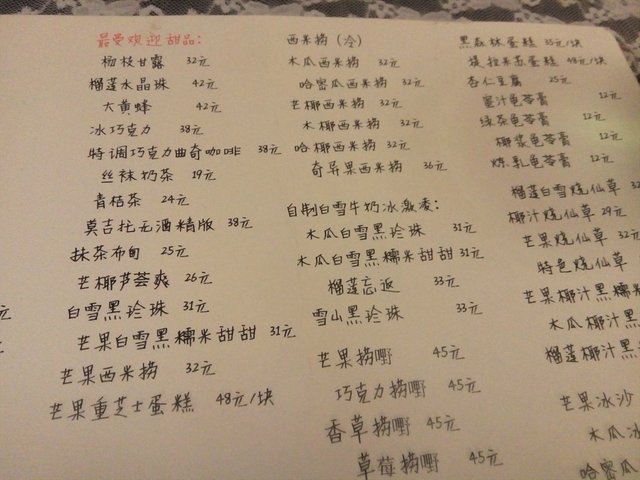 最受欢迎甜品:
杨枝甘露 32元
榴莲水晶珠 42元
大黄蜂 42元
冰巧克力 38元
特调巧克力曲奇咖啡 38元
丝袜奶茶 19元
青桔茶 24元
莫吉托无酒精版 38元
抹茶布甸 25元
芒椰芦荟爽 26元
白雪黑珍珠 31元
芒果白雪黑糯米甜甜 31元
芒果西米捞 32元
芒果重芝士蛋糕 48元/块
西米捞(冷)
木瓜西米捞 32元
哈密瓜西米捞 32元
芒椰西米捞 32元
木椰西米捞 32元
哈椰西米捞 32元
奇异果西米捞 36元
自制白雪牛奶冰激凌:
木瓜白雪黑珍珠 31元
木瓜白雪黑糯米甜甜 31元
榴莲忘返 33元
雪山黑珍珠 33元
芒果捞野 45元
巧克力捞嘢 45元
香草捞嘢 45元
草莓捞嘢 45元
黑森林蛋糕 35元/块
提拉米苏蛋糕 48元/块
杏仁豆腐 25元
蜜汁龟苓膏 12元
绿茶龟苓膏 12元
椰浆龟苓膏 12元
炼乳龟苓膏 12元
榴莲白雪烧仙草
椰汁烧仙草 29元
芒果烧仙草 32元
特色烧仙草 33
芒果椰汁黑糯米
木瓜椰汁黑
榴莲椰汁黑
芒果冰沙
木瓜冰
哈密瓜